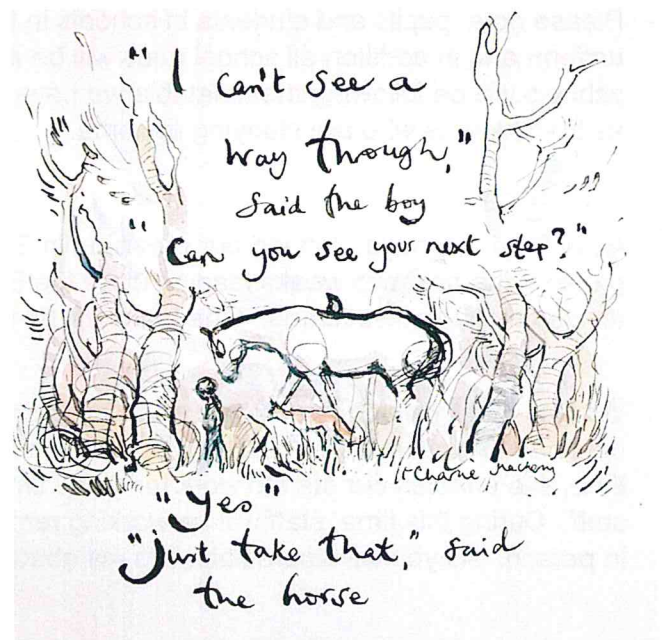 "I can't see a
way though,"
said the boy
"Can you see your next step?"
Charlie Mackesy
"Yes"
"Just take that," said
the horse